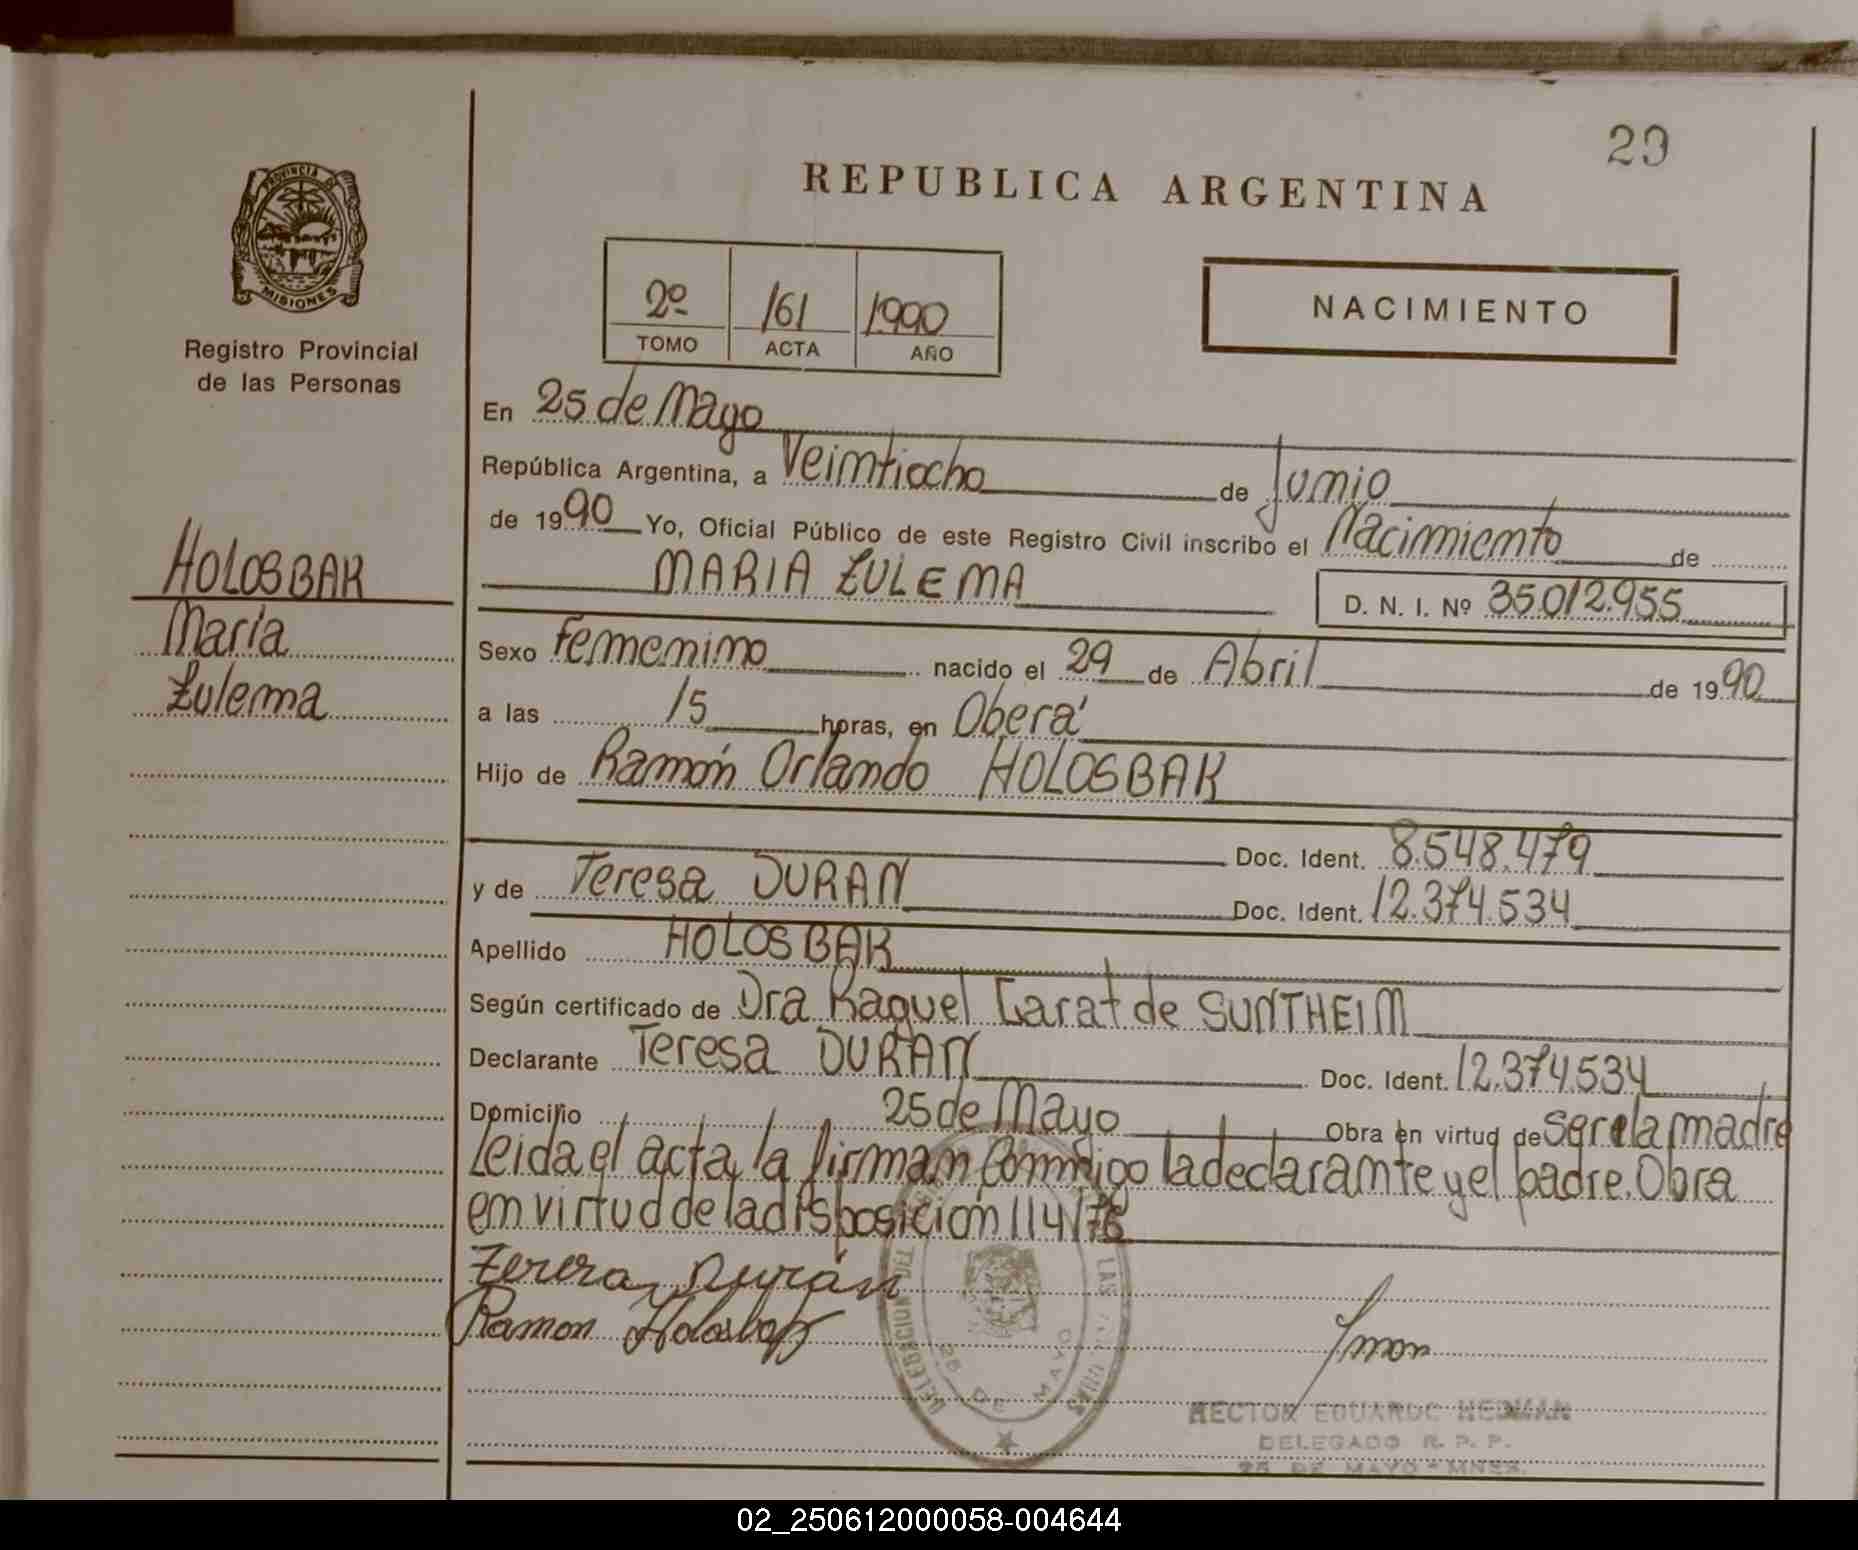 29
REPUBLICA ARGENTINA
PROVINCIA DE
MISIONES
Registro Provincial
de las Personas
2º 161 1990
TOMO ACTA AÑO
NACIMIENTO
En 25 de Mayo
República Argentina, a Veintiocho de Junio
de 1990 Yo, Oficial Público de este Registro Civil inscribo el Nacimiento de
MARIA ZULEMA
D. N. I. Nº 35.012.955
HOLOSBAK
María
Zulema
Sexo Femenino nacido el 29 de Abril de 1990
a las 15 horas, en Oberá
Hijo de Ramón Orlando HOLOSBAK
Doc. Ident. 8.548.479
y de Teresa DURAN Doc. Ident. 12.374.534
Apellido HOLOSBAK
Según certificado de Dra Raquel Carat de SUNTHEIM
Declarante Teresa DURAN Doc. Ident. 12.374.534
Domicilio 25 de Mayo Obra en virtud de ser la madre
Leida el acta, la firman conmigo la declarante y el padre. Obra
en virtud de la disposición 114/76
Teresa Durán
Ramon Holosbak
DELEGACION DEL LAS
25 DE MAYO
HECTOR EDUARDO
DELEGADO R. P. P.
25 DE MAYO - MNES.
02_250612000058-004644